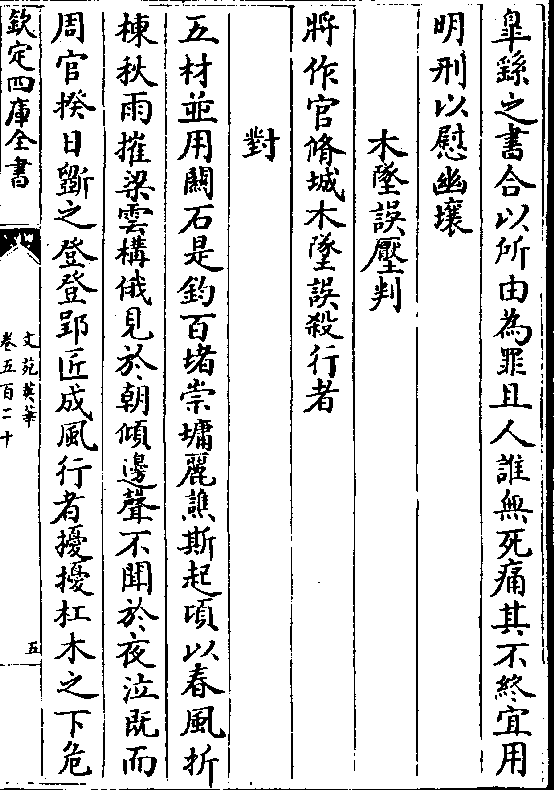 臯繇之書合以所由為罪且人誰無死痛其不終宜用
明刑以慰幽壤
木墜誤壓判
將作官脩城木墜誤殺行者
對
五材並用闗石是鈞百堵崇墉麗譙斯起頃以春風折
棟秋雨摧梁雲構俄見於朝傾邊聲不聞於夜泣既而
周官揆日斵之登登郢匠成風行者擾擾杠木之下危
欽定四庫全書
文苑英華
卷五百二十
五